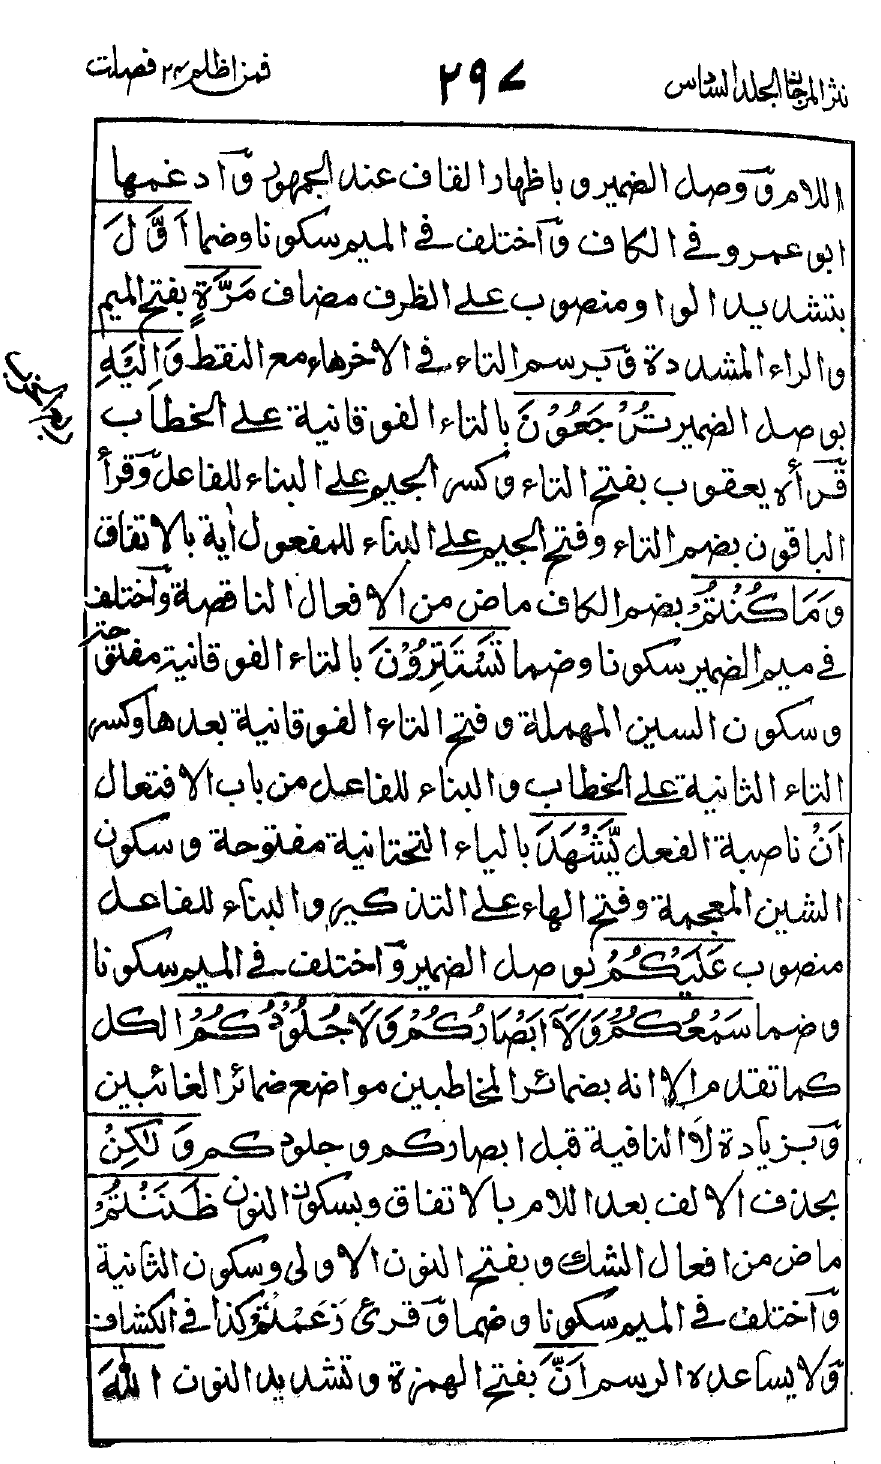 نثر المرجان الجلد السادس ٢٩٧ فمن اظلم ٢٤ فصلت
اللام وٓوصل الضمير و باظهار القاف عند الجمهور وٓادغمها
ابو عمرو في الكاف وٓاختلف في الميم سكونا وضما اَوَّلَ
بتشديد الواو و منصوب على الظرف مضاف مَرَّةٍ بفتح الميم
والراء المشددة وٓبرسم التاء في الاخر هاء مع النقط وَاِلَيْهِ
بوصل الضمير تُرْجَعُوْنَ بالتاء الفوقانية على الخطاب
قٓرأه يعقوب بفتح التاء وكسر الجيم على البناء للفاعل وٓقرأ
الباقون بضم التاء وفتح الجيم على البناء للمفعول أية بالاتفاق
وَمَا كُنْتُمْ بضم الكاف ماض من الافعال الناقصة وٓاختلف
في ميم الضمير سكونا وضما تَسْتَتِرُوْنَ بالتاء الفوقانية مفتوحة
و سكون السين المهملة و فتح التاء الفوقانية بعدها وكسر
التاء الثانية على الخطاب والبناء للفاعل من باب الافتعال
اَنْ ناصبة الفعل يَّشْهَدَ بالياء التحتانية مفتوحة و سكون
الشين المعجمة وفتح الهاء على التذكير والبناء للفاعل
منصوب عَلَيْكُمْ بوصل الضمير وٓاختلف في الميم سكونا
و ضما سَمْعُكُمْ وَلَآ اَبْصَارُكُمْ وَلَا جُلُوْدُكُمْ الكل
كما تقدم الا انه بضمائر المخاطبين مواضع ضمائر الغائبين
وٓبزيادة لَا النافية قبل ابصاركم و جلودكم وَلٰكِنْ
بحذف الالف بعد اللام بالاتفاق وبسكون النون ظَنَنْتُمْ
ماض من افعال الشك و بفتح النون الاولى وسكون الثانية
وٓاختلف في الميم سكونا و ضما وٓقرئ زَعَمْتُمْ كذا في الكشاف
وٓلا يساعده الرسم اَنَّ بفتح الهمزة و تشديد النون اللّٰهَ